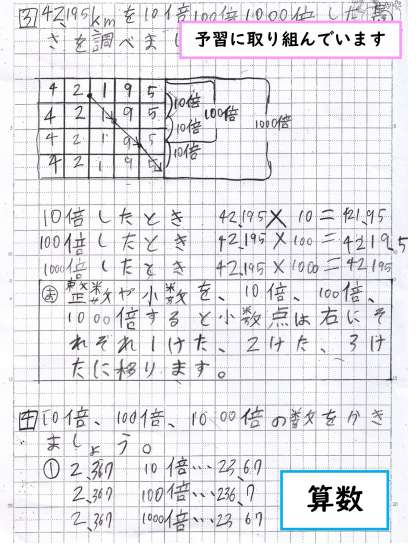 ③ 42.195kmを10倍100倍1000倍した
さを調べまし
予習に取り組んでいます
4 2 1 9 5
4 2 1 9 5
4 2 1 9 5
4 2 1 9 5
10倍
10倍
10倍
100倍
1000倍
10倍したとき 42.195×10=421.95
100倍したとき 42.195×100=4219.5
1000倍したとき 42.195×1000=42195
ま 整数や小数を、10倍、100倍、
1000倍すると小数点は右にそ
れぞれ1けた、2けた、3け
たに移ります。
4 10倍、100倍、1000倍の数をかき
ましょう。
① 2.367 10倍…23.67
2.367 100倍…236.7
2.367 1000倍…2367
算数